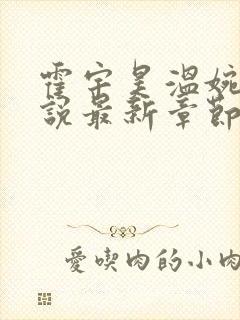 霍宗昊溫婉
說最新章節
愛喫肉的小肉